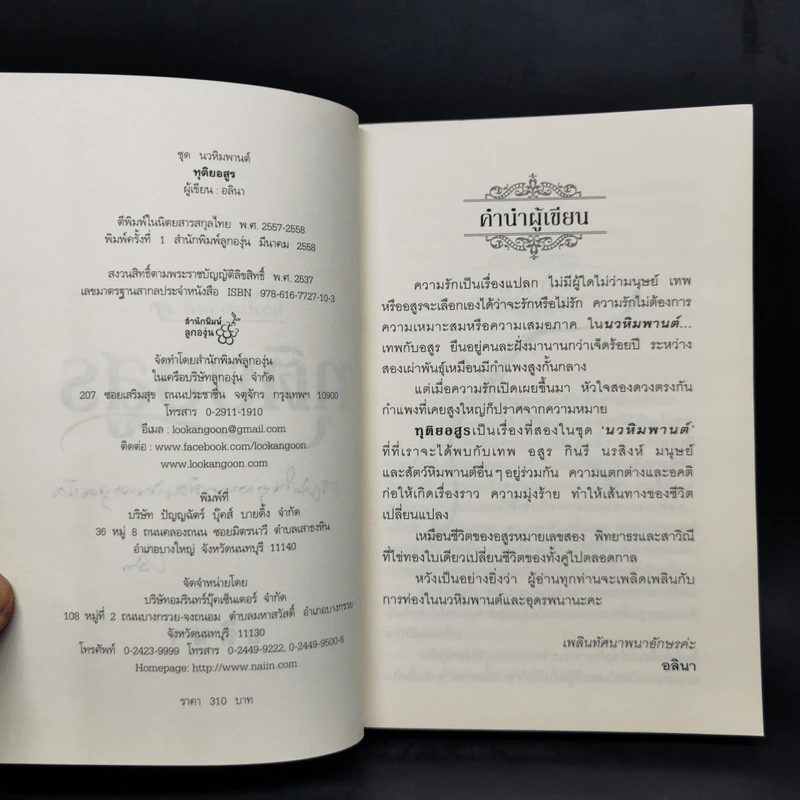 ชุด นวหิมพานต์
ทุติยอสูร
ผู้เขียน : อลินา
ตีพิมพ์ในนิตยสารสกุลไทย พ.ศ. 2557-2558
พิมพ์ครั้งที่ 1 สำนักพิมพ์ลูกองุ่น มีนาคม 2558
สงวนสิทธิ์ตามพระราชบัญญัติลิขสิทธิ์ พ.ศ. 2537
เลขมาตรฐานสากลประจำหนังสือ ISBN 978-616-7727-10-3
สำนักพิมพ์
ลูกองุ่น
จัดทำโดยสำนักพิมพ์ลูกองุ่น
ในเครือบริษัทลูกองุ่น จำกัด
207 ซอยเสริมสุข ถนนประชาชื่น จตุจักร กรุงเทพฯ 10900
โทรสาร 0-2911-1910
อีเมล : lookangoon@gmail.com
ติดต่อ : www.facebook.com/lookangoon
www.lookangoon.com
พิมพ์ที่
บริษัท ปัญญฉัตร์ บุ๊คส์ บายดิ้ง จำกัด
36 หมู่ 8 ถนนคลองถนน ซอยมิตรนาวี ตำบลเสาธงหิน
อำเภอบางใหญ่ จังหวัดนนทบุรี 11140
จัดจำหน่ายโดย
บริษัทอมรินทร์บุ๊คเซ็นเตอร์ จำกัด
108 หมู่ที่ 2 ถนนบางกรวย-จงถนอม ตำบลมหาสวัสดิ์ อำเภอบางกรวย
จังหวัดนนทบุรี 11130
โทรศัพท์ 0-2423-9999 โทรสาร 0-2449-9222, 0-2449-9500-6
Homepage: http://www.naiin.com
ราคา 310 บาท
คำนำผู้เขียน
ความรักเป็นเรื่องแปลก ไม่มีผู้ใดไม่ว่ามนุษย์ เทพ
หรืออสูรจะเลือกเองได้ว่าจะรักหรือไม่รัก ความรักไม่ต้องการ
ความเหมาะสมหรือความเสมอภาค ในนวหิมพานต์...
เทพกับอสูร ยืนอยู่คนละฝั่งมานานกว่าเจ็ดร้อยปี ระหว่าง
สองเผ่าพันธุ์เหมือนมีกำแพงสูงกั้นกลาง
แต่เมื่อความรักเปิดเผยขึ้นมา หัวใจสองดวงตรงกัน
กำแพงที่เคยสูงใหญ่ก็ปราศจากความหมาย
ทุติยอสูรเป็นเรื่องที่สองในชุด 'นวหิมพานต์'
ที่ที่เราจะได้พบกับเทพ อสูร กินรี นรสิงห์ มนุษย์
และสัตว์หิมพานต์อื่นๆ อยู่ร่วมกัน ความแตกต่างและอคติ
ก่อให้เกิดเรื่องราว ความมุ่งร้าย ทำให้เส้นทางของชีวิต
เปลี่ยนแปลง
เหมือนชีวิตของอสูรหมายเลขสอง พิทยาธรและสาวิณี
ที่ไข่ทองใบเดียวเปลี่ยนชีวิตของทั้งคู่ไปตลอดกาล
หวังเป็นอย่างยิ่งว่า ผู้อ่านทุกท่านจะเพลิดเพลินกับ
การท่องในนวหิมพานต์และอุดรพนานะคะ
เพลินทัศนาพนาอักษรค่ะ
อลินา